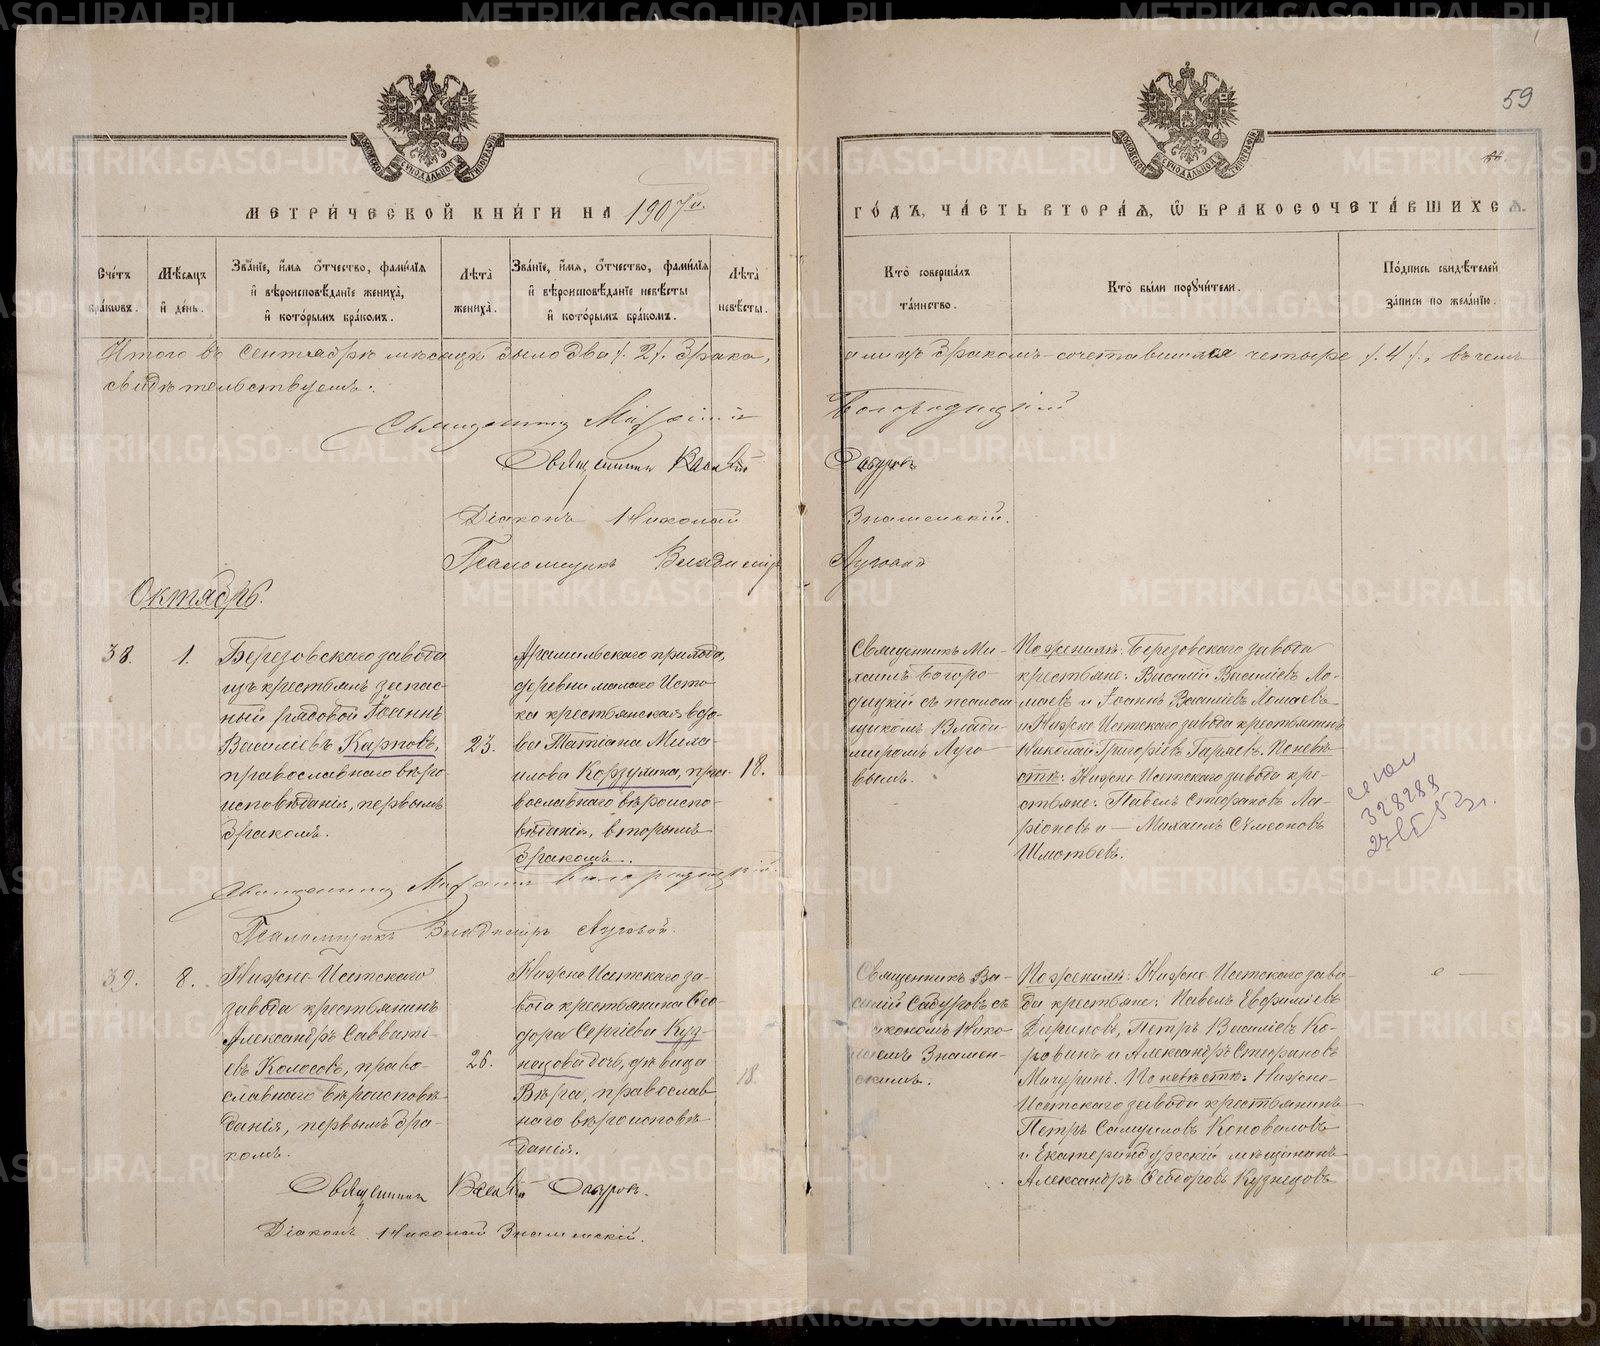 59
МЕТРИЧЕСКОЙ КНИГИ НА 1907й.
ГОДЪ, ЧАСТЬ ВТОРАЯ, Ѡ БРАКОСОЧЕТАВШИХСЯ.
Счетъ браковъ.
Мѣсяцъ и день.
Званіе, имя, отчество, фамилія и вѣроисповѣданіе жениха, и которымъ бракомъ.
Лѣта жениха.
Званіе, имя, отчество, фамилія и вѣроисповѣданіе невѣсты и которымъ бракомъ.
Лѣта невѣсты.
Кто совершалъ таинство.
Кто были поручители.
Подпись свидѣтелей записи по желанію.
Итого въ сентябрѣ мѣсяцѣ было два /. 2 /. брака,
а лицъ бракомъ сочетавшихся четыре /. 4 /., въ чемъ
свидѣтельствуемъ:
Священникъ Михаилъ Богородицкій
Священникъ Василій Сабуровъ
Діаконъ Николай Знаменскій.
Псаломщикъ Владиміръ Луговой
Октябрь.
38.
1.
Березовскаго завода
изъ крестьянъ запас-
ный рядовой Іоаннъ
Василіевъ Карповъ,
православнаго вѣро-
исповѣданія, первымъ
бракомъ.
23.
Арамильскаго прихода,
деревни малаго Исто-
ка крестьянская вдо-
ва Татіана Миха-
илова Корзунина, пра-
вославнаго вѣроиспо-
вѣданія, вторымъ
бракомъ.
18.
Священникъ Ми-
хаилъ Богоро-
дицкій съ псалом-
щикомъ Влади-
миромъ Луго-
вымъ.
По женихѣ: Березовскаго завода
крестьяне: Василій Василіевъ Ло-
маевъ и Іоаннъ Василіевъ Ломаевъ
и Нижне-Исетскаго завода крестьянинъ
Николай Григоріевъ Гаряевъ. По невѣ-
стѣ: Нижне-Исетскаго завода кре-
стьяне: Павелъ Стефановъ Ла-
ріоновъ и Михаилъ Сѵмеоновъ
Шмотьевъ.
328288
Священникъ Михаилъ Богородицкій.
Псаломщикъ Владиміръ Луговой.
39.
8.
Нижне-Исетскаго
завода крестьянинъ
Александръ Савваті-
евъ Колосовъ, право-
славнаго вѣроисповѣ-
данія, первымъ бра-
комъ.
26.
Нижне-Исетскаго за-
вода крестьянина Ѳео-
дора Сергіева Куз-
нецова дочь, дѣвица
Вѣра, православ-
наго вѣроисповѣ-
данія.
18.
Священникъ Ва-
силій Сабуровъ съ
діакономъ Нико-
лаемъ Знамен-
скимъ.
По женихѣ: Нижне-Исетскаго заво-
да крестьяне: Павелъ Евфиміевъ
Петръ Василіевъ Ко-
ровинъ и Александръ Стефановъ
Мичуринъ. По невѣстѣ: Нижне-
Исетскаго завода крестьянинъ
Петръ Самуиловъ Коноваловъ
и Екатеринбургскій мѣщанинъ
Александръ Ѳеодоровъ Кузнецовъ
Священникъ Василій Сабуровъ.
Діаконъ Николай Знаменскій.
METRIKI.GASO-URAL.RU